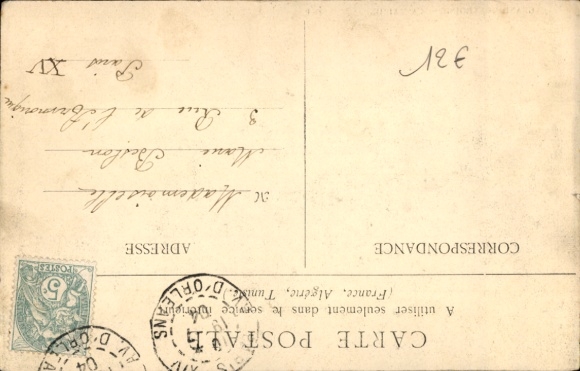 CARTE POSTALE
A utiliser seulement dans le service intérieur
(France, Algérie, Tunisie.)
CORRESPONDANCE
ADRESSE
M Mademoiselle
Marie Beslon
3 Rue de l'Armorique
Paris XV
POSTES
5
AV. D'ORLEANS
04
AV. D'ORLEANS
04